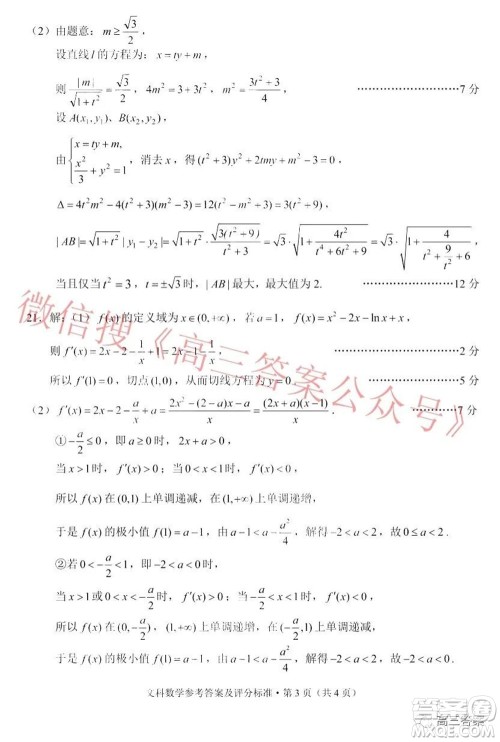 （2）由题意：m ≥ √3/2，
设直线 l 的方程为：x = ty + m，
则 |m|/√(1+t²) = √3/2，4m² = 3 + 3t²，m² = (3t²+3)/4，………………………7 分
设 A(x₁, y₁)、B(x₂, y₂)，
由{x = ty + m, x²/3 + y² = 1，消去 x，得 (t²+3)y² + 2tmy + m² − 3 = 0，
Δ = 4t²m² − 4(t²+3)(m²−3) = 12(t² − m² + 3) = 3(t²+9)，
|AB| = √(1+t²) |y₁ − y₂| = √(1+t²) · √(3(t²+9))/(t²+3) = √3 · √(1 + 4t²/(t⁴+6t²+9)) = √3 · √(1 + 4/(t² + 9/t² + 6))，
当且仅当 t² = 3，t = ±√3 时，|AB| 最大，最大值为 2. ………………12 分
21. 解：（1）f(x) 的定义域为 x∈(0,+∞)，若 a = 1，f(x) = x² − 2x − ln x + x，
则 f′(x) = 2x − 2 − 1/x + 1， ………………3 分
所以 f′(1) = 0，切点(1,0)，从而切线方程为 y = 0. ………………5 分
（2）f′(x) = 2x − 2 − a/x + a = (2x² − (2−a)x − a)/x = (2x+a)(x−1)/x． ………7 分
①−a/2 ≤ 0，即 a > 0 时，2x + a > 0，
当 x > 1 时，f′(x) > 0，当 0 < x < 1 时，f′(x) < 0，
所以 f(x) 在 (0,1) 上单调递减，在 (1,+∞) 上单调递增，
于是 f(x) 的极小值 f(1) = a − 1，由 a − 1 < a − a²/4，解得 −2 < a < 2，故 0 ≤ a < 2．
②若 0 < −a/2 < 1，即 −2 < a < 0 时，
当 x > 1 或 0 < x < −a/2 时，f′(x) > 0，当 −a/2 < x < 1 时，f′(x) < 0，
所以 f(x) 在(0, −a/2)，(1,+∞) 上单调递增，在 (−a/2, 1) 上单调递减，
于是 f(x) 的极小值 f(1) = a − 1，由 a − 1 < a − a²/4，解得 −2 < a < 2，故 −2 < a < 0．
文科数学参考答案及评分标准·第 3 页（共 4 页）
微信搜《高三答案公众号》
高三答案